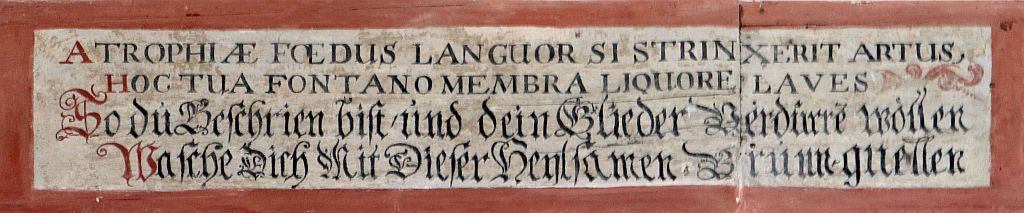 ATROPHIÆ FŒDUS LANGUOR SI STRINXERIT ARTUS,
HOC TUA FONTANO MEMBRA LIQUORE LAVES
So dú Beschrien bist / und dein Glieder Verdurrē wöllen
Wasche Dich Mit Dieser Heylsamen Brunn-quellen